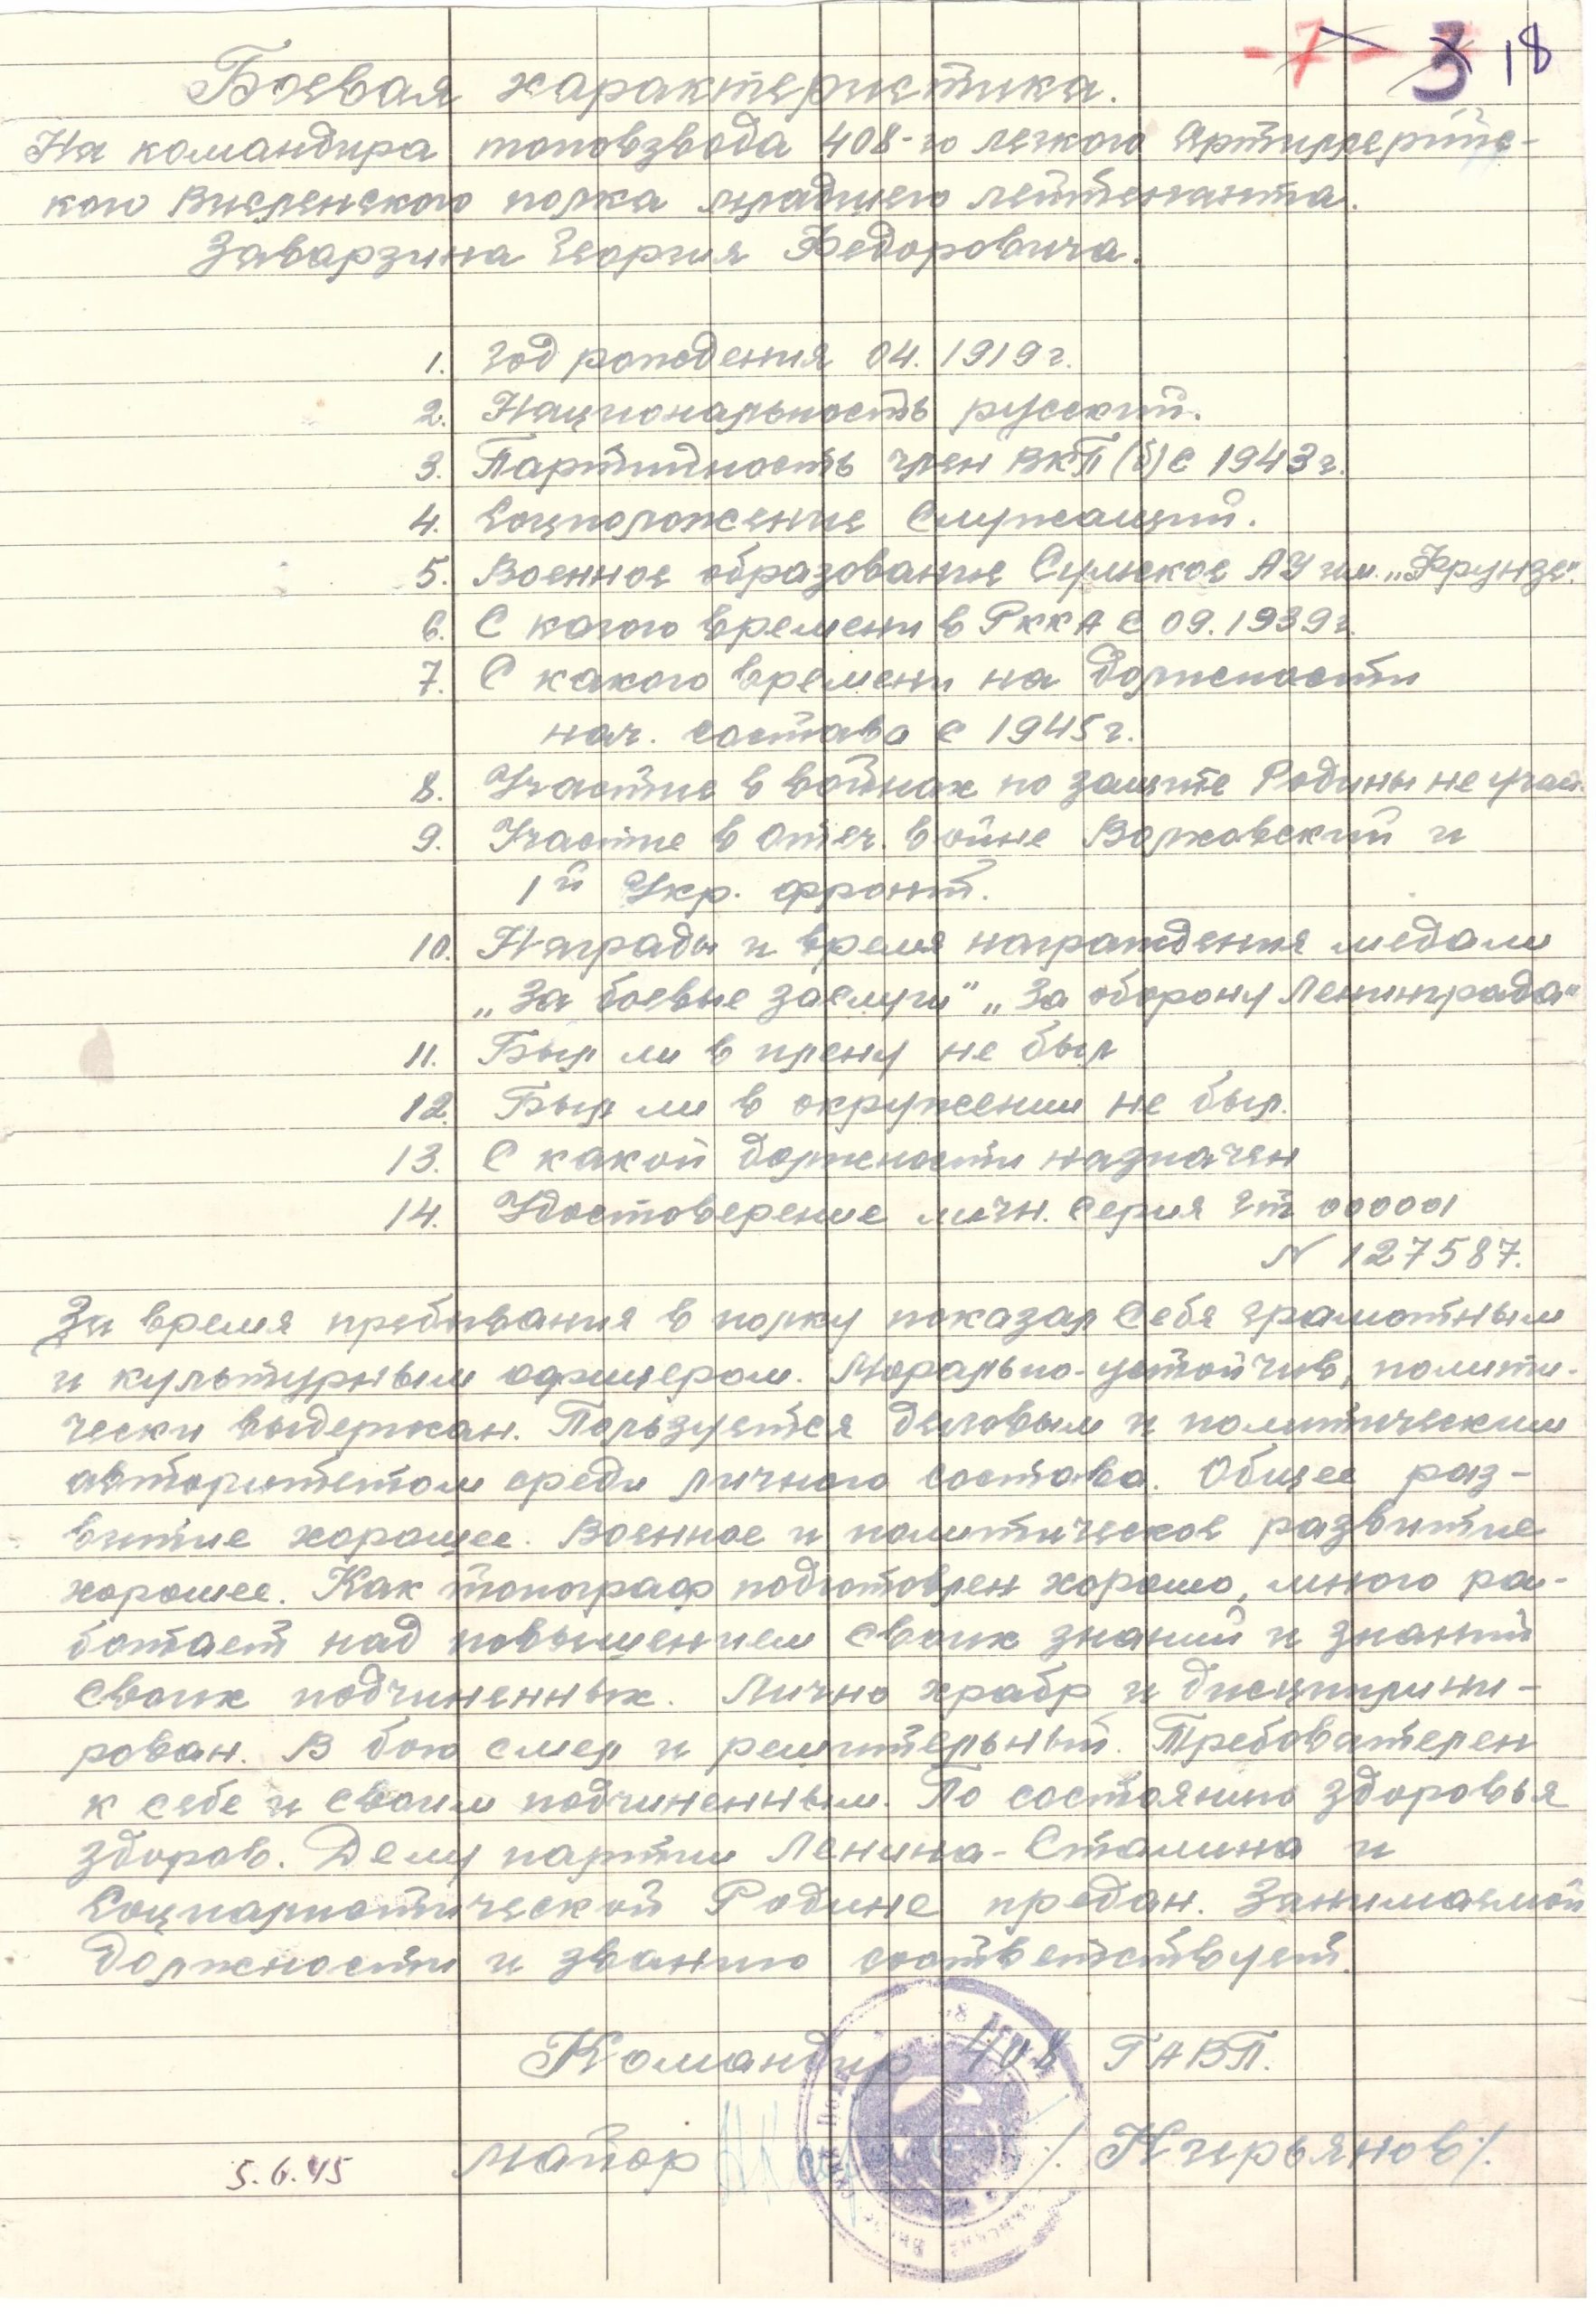 -7- 3 18
Боевая характеристика.
На командира топовзвода 408-го легкого Артиллерийс-
кого Висленского полка младшего лейтенанта.
Заварзина Георгия Федоровича.
1. Год рождения 04. 1919 г.
2. Национальность русский.
3. Партийность член ВКП(б) с 1943 г.
4. Соцположение Служащий.
5. Военное образование Сумское АУ им. „Фрунзе".
6. С какого времени в РККА с 09. 1939 г.
7. С какого времени на должности
нач. состава с 1945 г.
8. Участие в войнах по защите Родины не учас.
9. Участие в Отеч. войне Волховский и
1й Укр. фронт.
10. Награды и время награждения медали
„За боевые заслуги" „За оборону Ленинграда"
11. Был ли в плену не был
12. Был ли в окружении не был.
13. С какой должности назначен
14. Удостоверение личн. Серия 000001
N 127587.
За время пребывания в полку показал себя грамотным
и культурным офицером. Морально-устойчив, полити-
чески выдержан. Пользуется деловым и политическим
авторитетом среди личного состава. Общее раз-
витие хорошее. Военное и политическое развитие
хорошее. Как топограф подготовлен хорошо, много ра-
ботает над повышением своих знаний и знаний
своих подчиненных. Лично храбр и дисциплини-
рован. В бою смел и решительный. Требователен
к себе и своим подчиненным. По состоянию здоровья
здоров. Делу партии Ленина-Сталина и
Социалистической Родине предан. Занимаемой
должности и званию соответствует.
Командир 408 ГАВП.
майор /Кирьянов/.
5.6.45